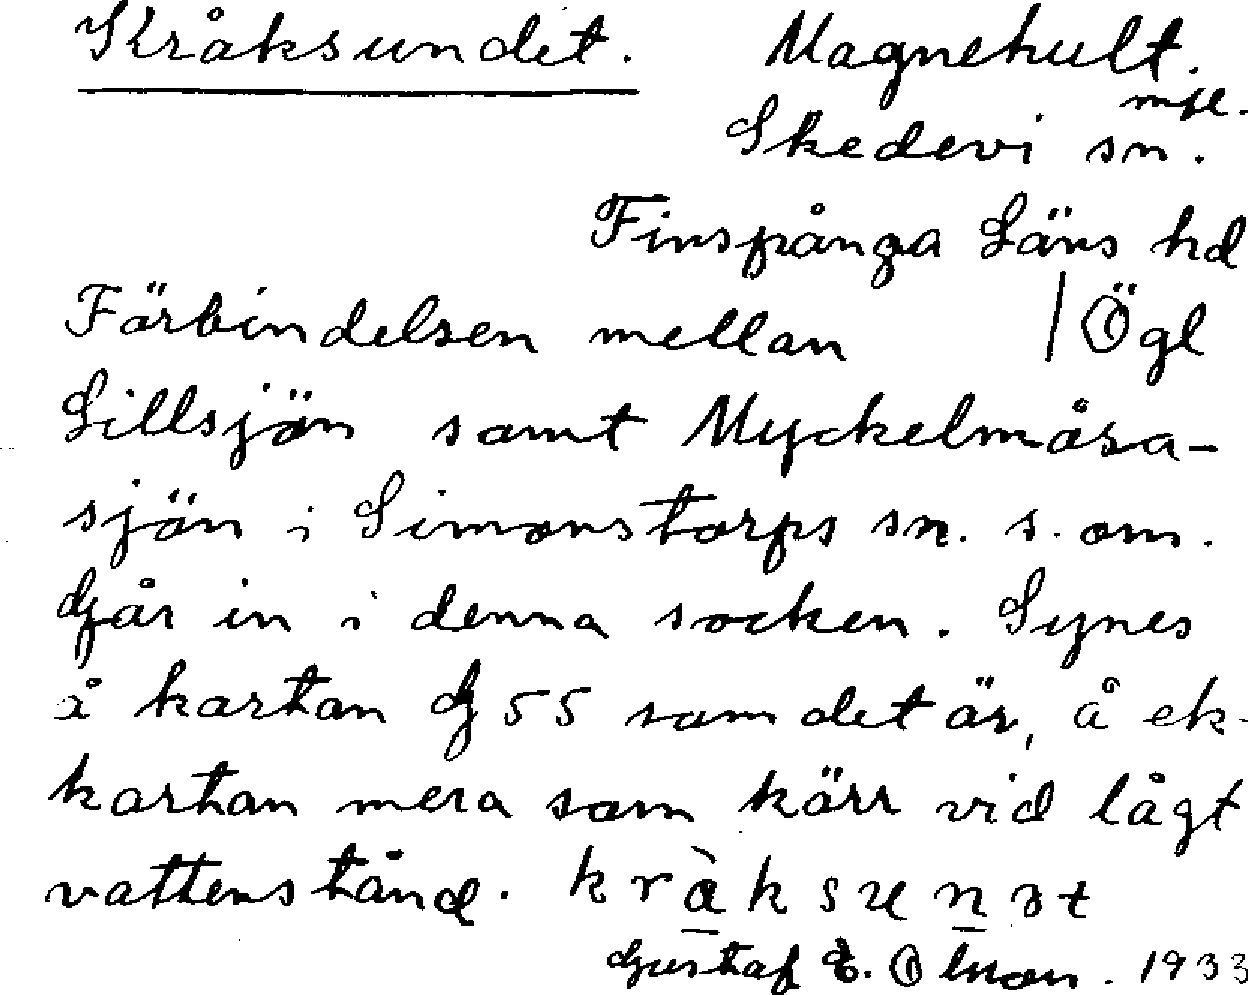 Kråksundet. Magnehult.
mfl.
Skedevi sn.
Finspånga Läns hd
Förbindelsen mellan | Ögl
Lillsjön samt Myckelmåsa-
sjön i Simonstorps sn. s. om.
Går in i denna socken. Synes
å kartan G 55 som det är, å ek-
kartan mera som kärr vid lågt
vattenstånd. kràksunət
Gustaf E. Olson. 1933